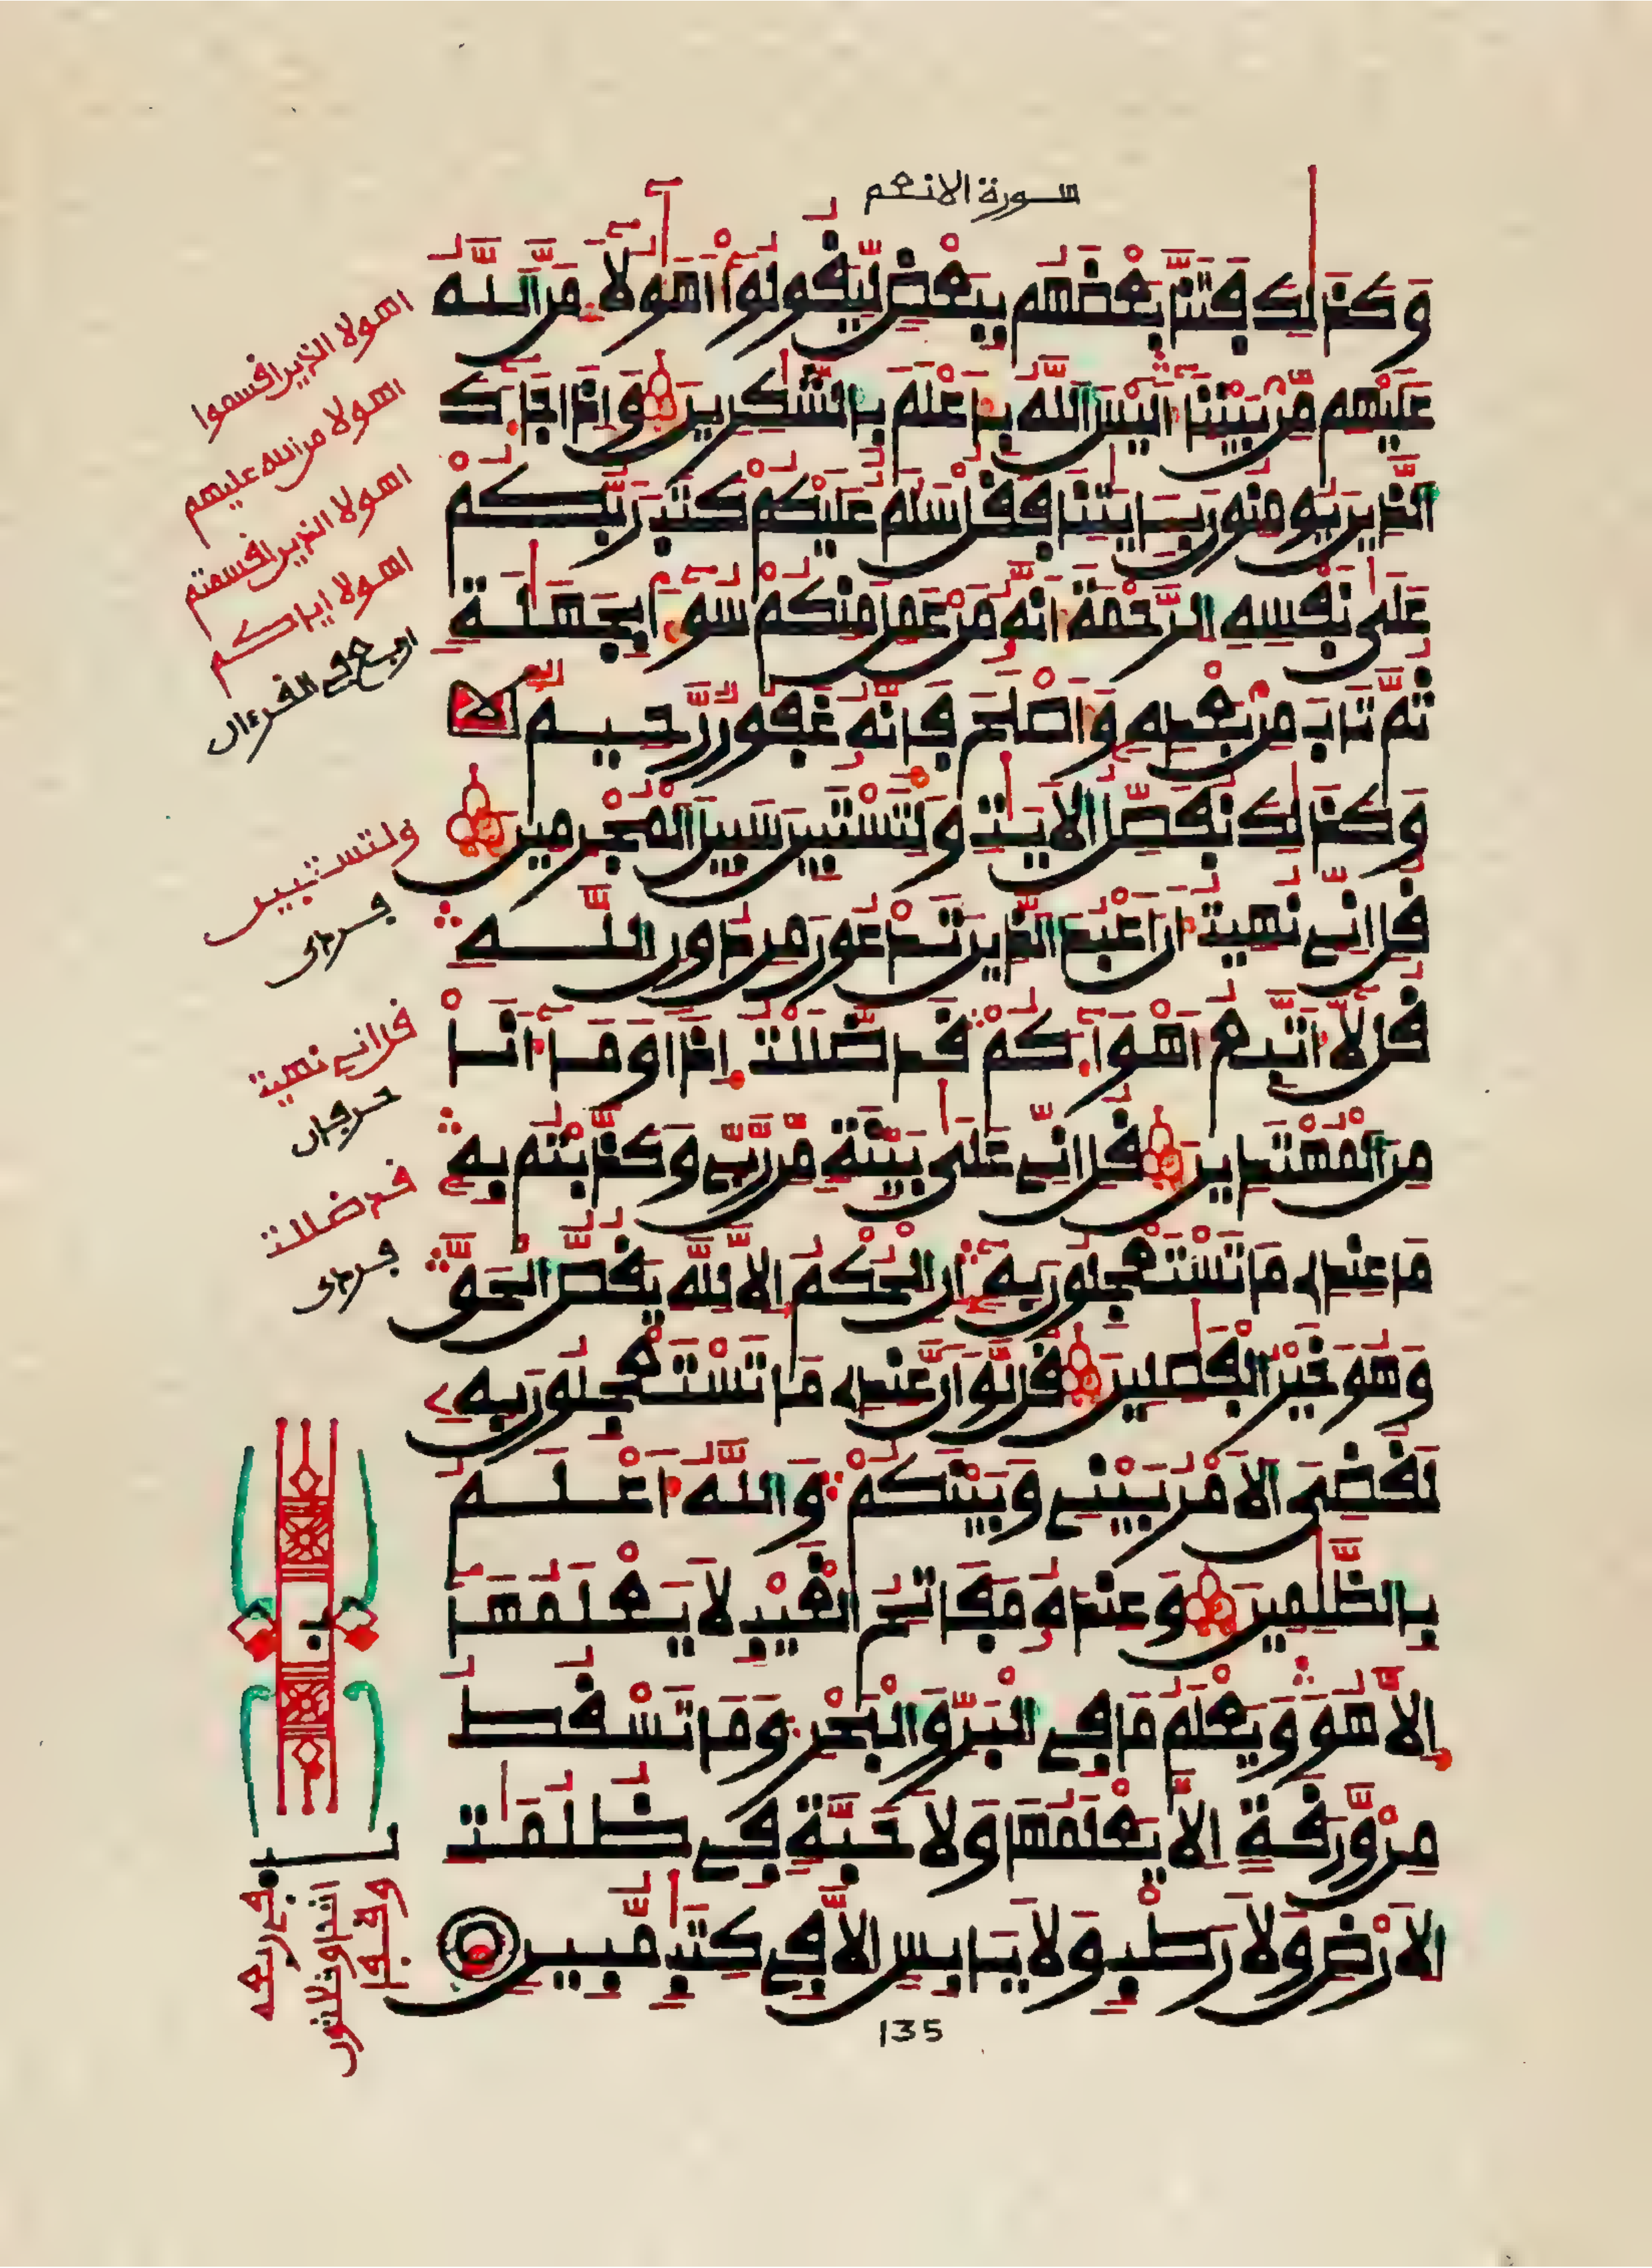 سورة الانعم
وَكَذَٰلِكَ فَتَنَّا بَعْضَهُم بِبَعْضٍ لِّيَقُولُوٓا۟ أَهَٰٓؤُلَآءِ مَنَّ ٱللَّهُ
عَلَيْهِم مِّنۢ بَيْنِنَآ أَلَيْسَ ٱللَّهُ بِأَعْلَمَ بِالشَّٰكِرِينَ وَإِذَا جَآءَكَ
ٱلذِينَ يُومِنُونَ بِـَٔايَٰتِنَا فَقُلْ سَلَٰمٌ عَلَيْكُمْ كَتَبَ رَبُّكُمْ
عَلَىٰ نَفْسِهِ ٱلرَّحْمَةَ أَنَّهُۥ مَنْ عَمِلَ مِنكُمْ سُوٓءًۢا بِجَهَٰلَةٍ
ثُمَّ تَابَ مِنۢ بَعْدِهِۦ وَأَصْلَحَ فَإِنَّهُۥ غَفُورٌ رَّحِيمٌ
وَكَذَٰلِكَ نُفَصِّلُ ٱلَايَٰتِ وَلِتَسْتَبِينَ سَبِيلَ ٱلْمُجْرِمِينَ
قُلِ انِّے نُهِيتُ أَنَ اَعْبُدَ ٱلذِينَ تَدْعُونَ مِن دُونِ ٱللَّهِ
قُل لَّآ أَتَّبِعُ أَهْوَآءَكُمْ قَد ضَّلَلْتُ إِذًا وَمَآ أَنَا
مِنَ ٱلْمُهْتَدِينَ قُلِ انِّے عَلَىٰ بَيِّنَةٍ مِّن رَّبِّے وَكَذَّبْتُم بِهِۦ
مَا عِندِے مَا تَسْتَعْجِلُونَ بِهِۦٓ إِنِ ٱلْحُكْمُ إِلَّا لِلهِ يَقُصُّ ٱلْحَقَّ
وَهُوَ خَيْرُ ٱلْفَٰصِلِينَ قُل لَّوَ اَنَّ عِندِے مَا تَسْتَعْجِلُونَ بِهِۦ
لَقُضِيَ ٱلَامْرُ بَيْنِے وَبَيْنَكُمْ وَاللَّهُ أَعْلَمُ
بِالظَّٰلِمِينَ وَعِندَهُۥ مَفَاتِحُ ٱلْغَيْبِ لَا يَعْلَمُهَآ
إِلَّا هُوَ وَيَعْلَمُ مَا فِے ٱلْبَرِّ وَالْبَحْرِ وَمَا تَسْقُطُ
مِنْ وَّرَقَةٍ إِلَّا يَعْلَمُهَا وَلَا حَبَّةٍ فِے ظُلُمَٰتِ
ٱلَارْضِ وَلَا رَطْبٍ وَلَا يَابِسٍ إِلَّا فِے كِتَٰبٍ مُّبِينٍ
اهولا الذين اقسموا
اهولا من الله عليهم
اهولا الذين اقسمتم
اهولا اياكم
اربع في القرءان
ولتستبين
فردى
قل اني نهيت
حرفان
قد ضللت
فردى
ب
135